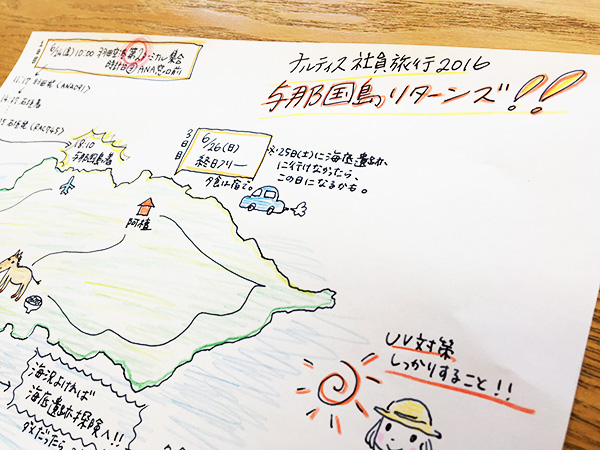 1日目
6/24(金) 10:00 羽田空港 第2ターミナル集合
時計台④ ANA窓口前
ナルティス 社員旅行2016
与那国島リターンズ!!
11:15 羽田発 (ANA091)
14:15 石垣島
石垣発 (RAC745)
18:10
与那国島着
3日目
6/26(日)
終日フリー
夕食は宿で。
※25日(土)に海底遺跡
に行けなかったら、
この日になるかも。
海況よければ
海底遺跡探険へ!!
ダメだったら
UV対策
しっかりすること!!